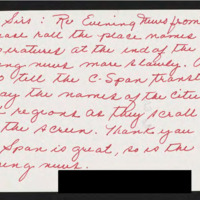 Sirs: Re Evening News from
ease roll the place names
peratures at the end of the
ng news more slowly. A
to tell the C-Span transl
ay the names of the citie
regions as they scroll
the screen. Thank you
Span is great, so is the
ning news.